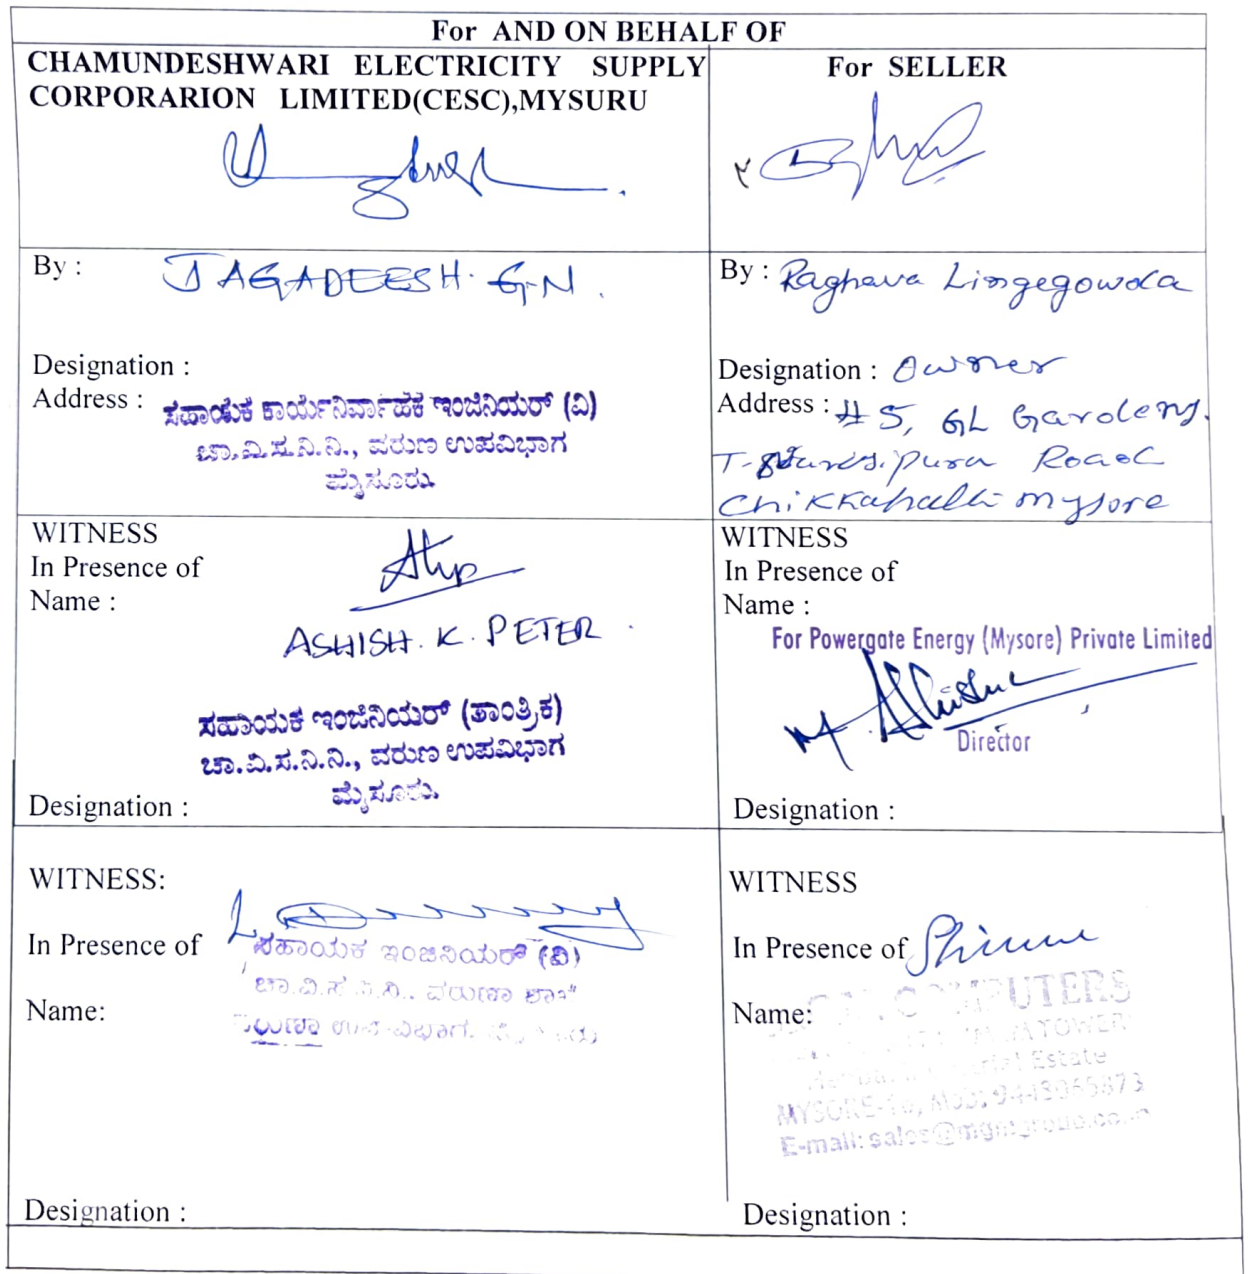 For AND ON BEHALF OF
CHAMUNDESHWARI ELECTRICITY SUPPLY
CORPORARION LIMITED(CESC),MYSURU
For SELLER
By : JAGADEESH. G.N.
Designation :
Address : ಸಹಾಯಕ ಕಾರ್ಯನಿರ್ವಾಹಕ ಇಂಜಿನಿಯರ್ (ವಿ)
ಚಾ.ವಿ.ಸ.ನಿ.ನಿ., ವರುಣ ಉಪವಿಭಾಗ
ಮೈಸೂರು.
By : Raghava Lingegowda
Designation : Owner
Address : # 5, GL Gardens.
T- Road
Chikkahalli Mysore
WITNESS
In Presence of
Name :
ASHISH. K. PETER
ಸಹಾಯಕ ಇಂಜಿನಿಯರ್ (ತಾಂತ್ರಿಕ)
ಚಾ.ವಿ.ಸ.ನಿ.ನಿ., ವರುಣ ಉಪವಿಭಾಗ
ಮೈಸೂರು.
Designation :
WITNESS
In Presence of
Name :
For Powergate Energy (Mysore) Private Limited
Director
Designation :
WITNESS:
In Presence of
ಸಹಾಯಕ ಇಂಜಿನಿಯರ್ (ವಿ)
ಚಾ.ವಿ.ಸ ನಿ.ನಿ., ವರುಣಾ
Name:
Designation :
WITNESS
In Presence of
Name: COMPUTERS
Estate
MYSORE
E-mail:
Designation :